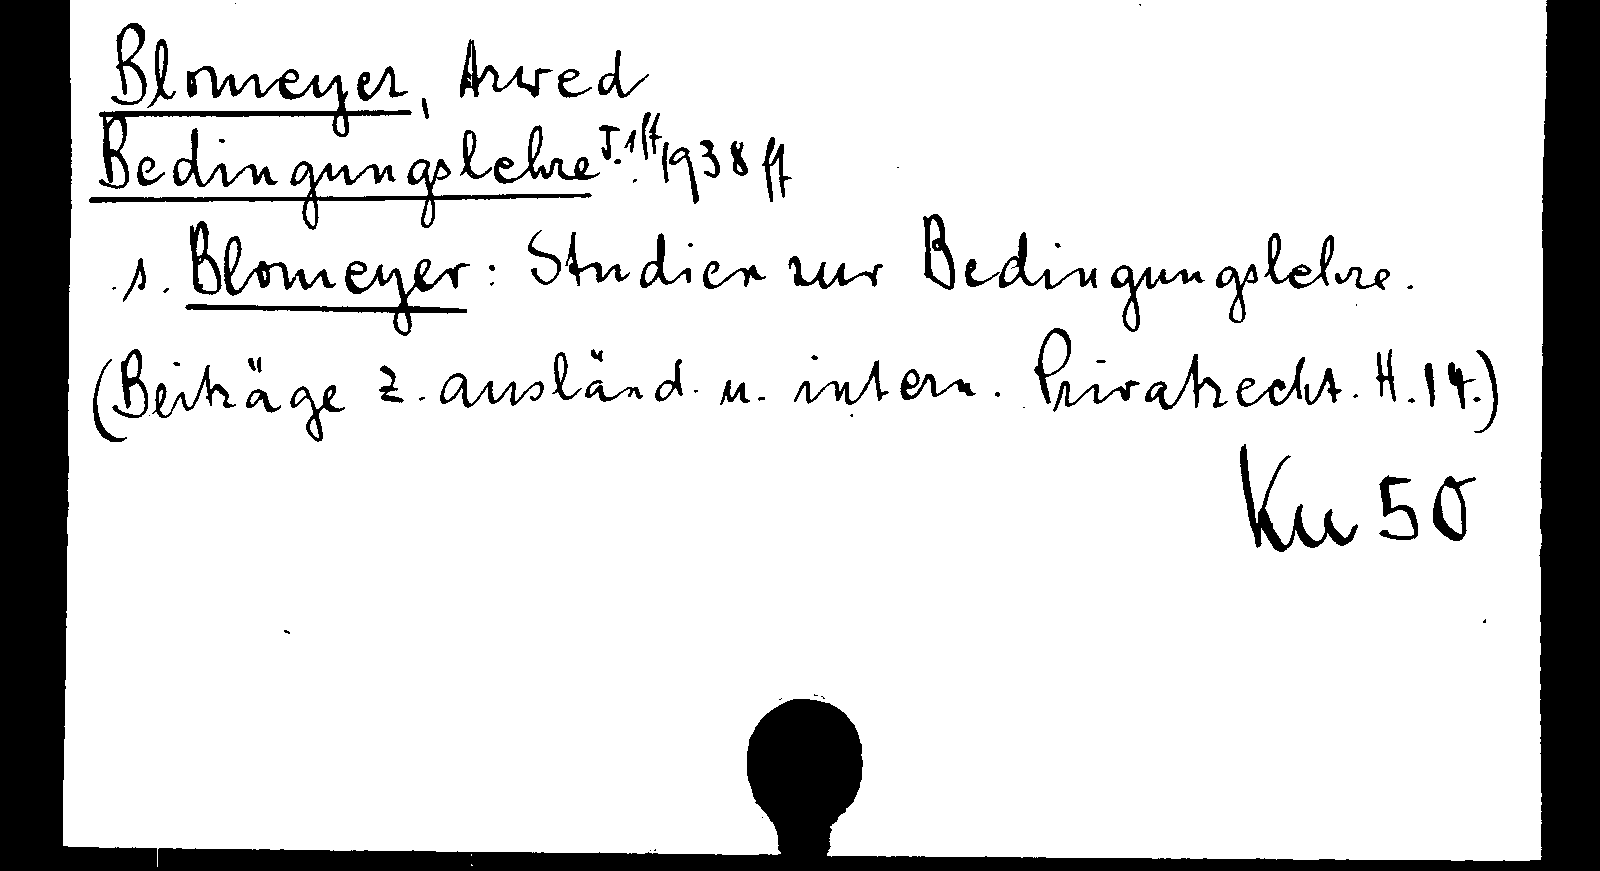 Blomeyer, Arwed
Bedingungslehre T.1ff. 1938 ff
s. Blomeyer: Studien zur Bedingungslehre.
(Beiträge z. ausländ. u. intern. Privatrecht. H.14.)
Ku 50